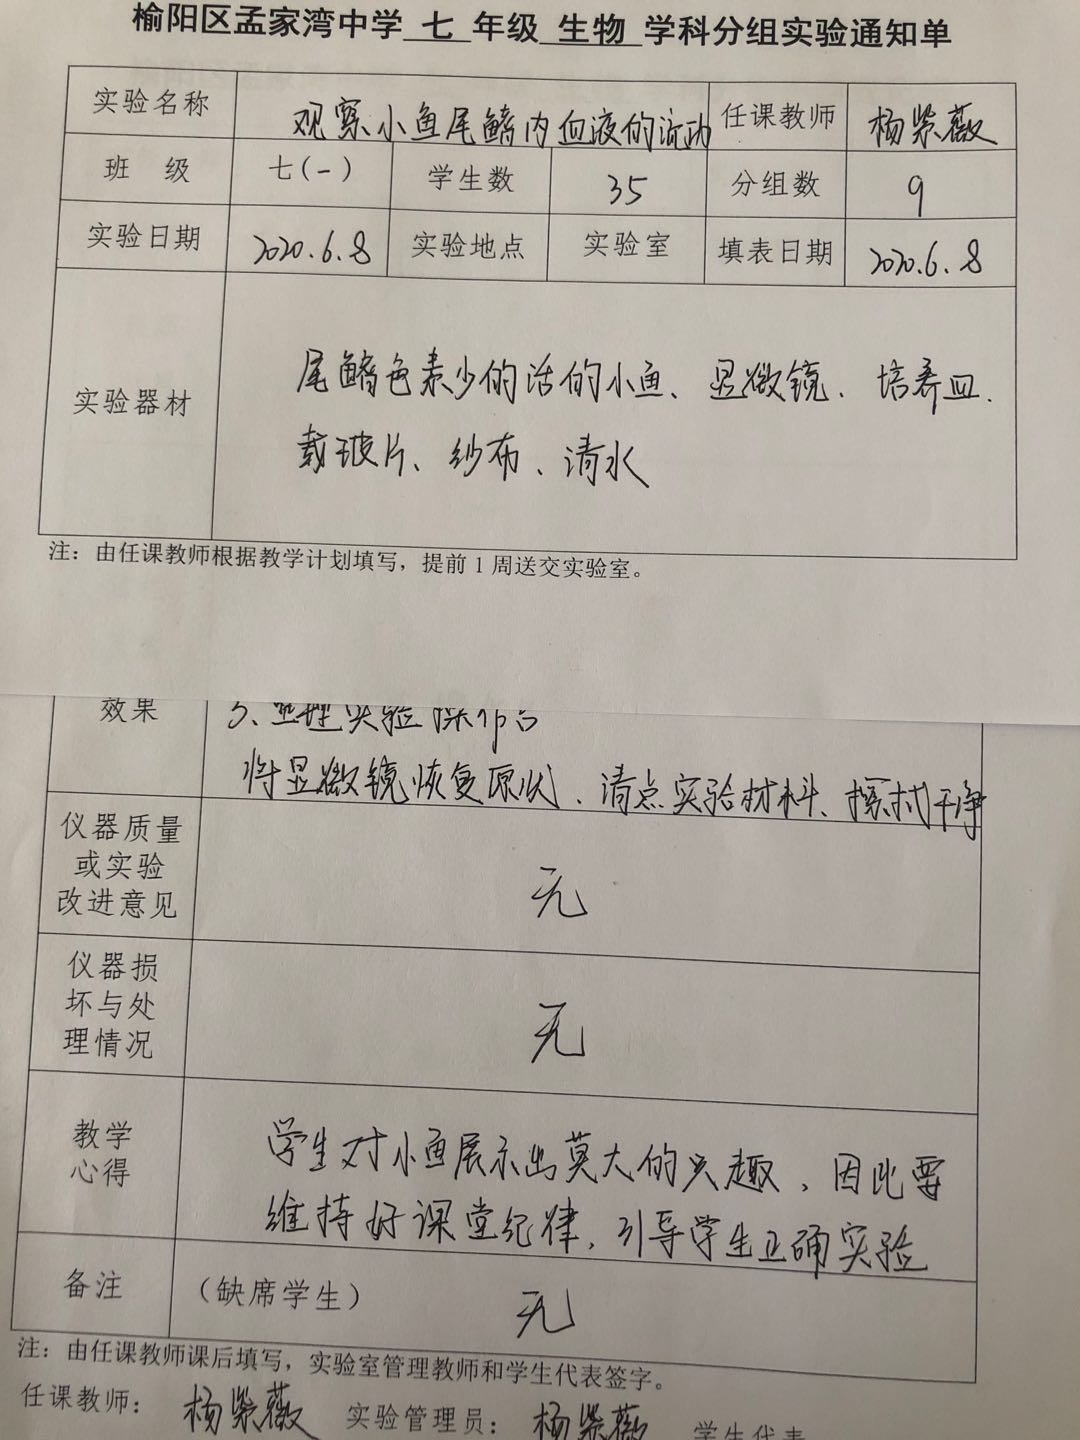 榆阳区孟家湾中学 七 年级 生物 学科分组实验通知单
实验名称 观察小鱼尾鳍内血液的流动 任课教师 杨紫薇
班 级 七(一) 学生数 35 分组数 9
实验日期 2020.6.8 实验地点 实验室 填表日期 2020.6.8
实验器材
尾鳍色素少的活的小鱼、显微镜、培养皿、
载玻片、纱布、清水
注：由任课教师根据教学计划填写，提前1周送交实验室。
效果
3、整理实验操作台
将显微镜恢复原状、清点实验材料、擦拭干净
仪器质量
或实验
改进意见
无
仪器损
坏与处
理情况
无
教学
心得
学生对小鱼展示出莫大的兴趣，因此要
维持好课堂纪律，引导学生正确实验
备注 （缺席学生） 无
注：由任课教师课后填写，实验室管理教师和学生代表签字。
任课教师： 杨紫薇 实验管理员： 杨紫薇 学生代表